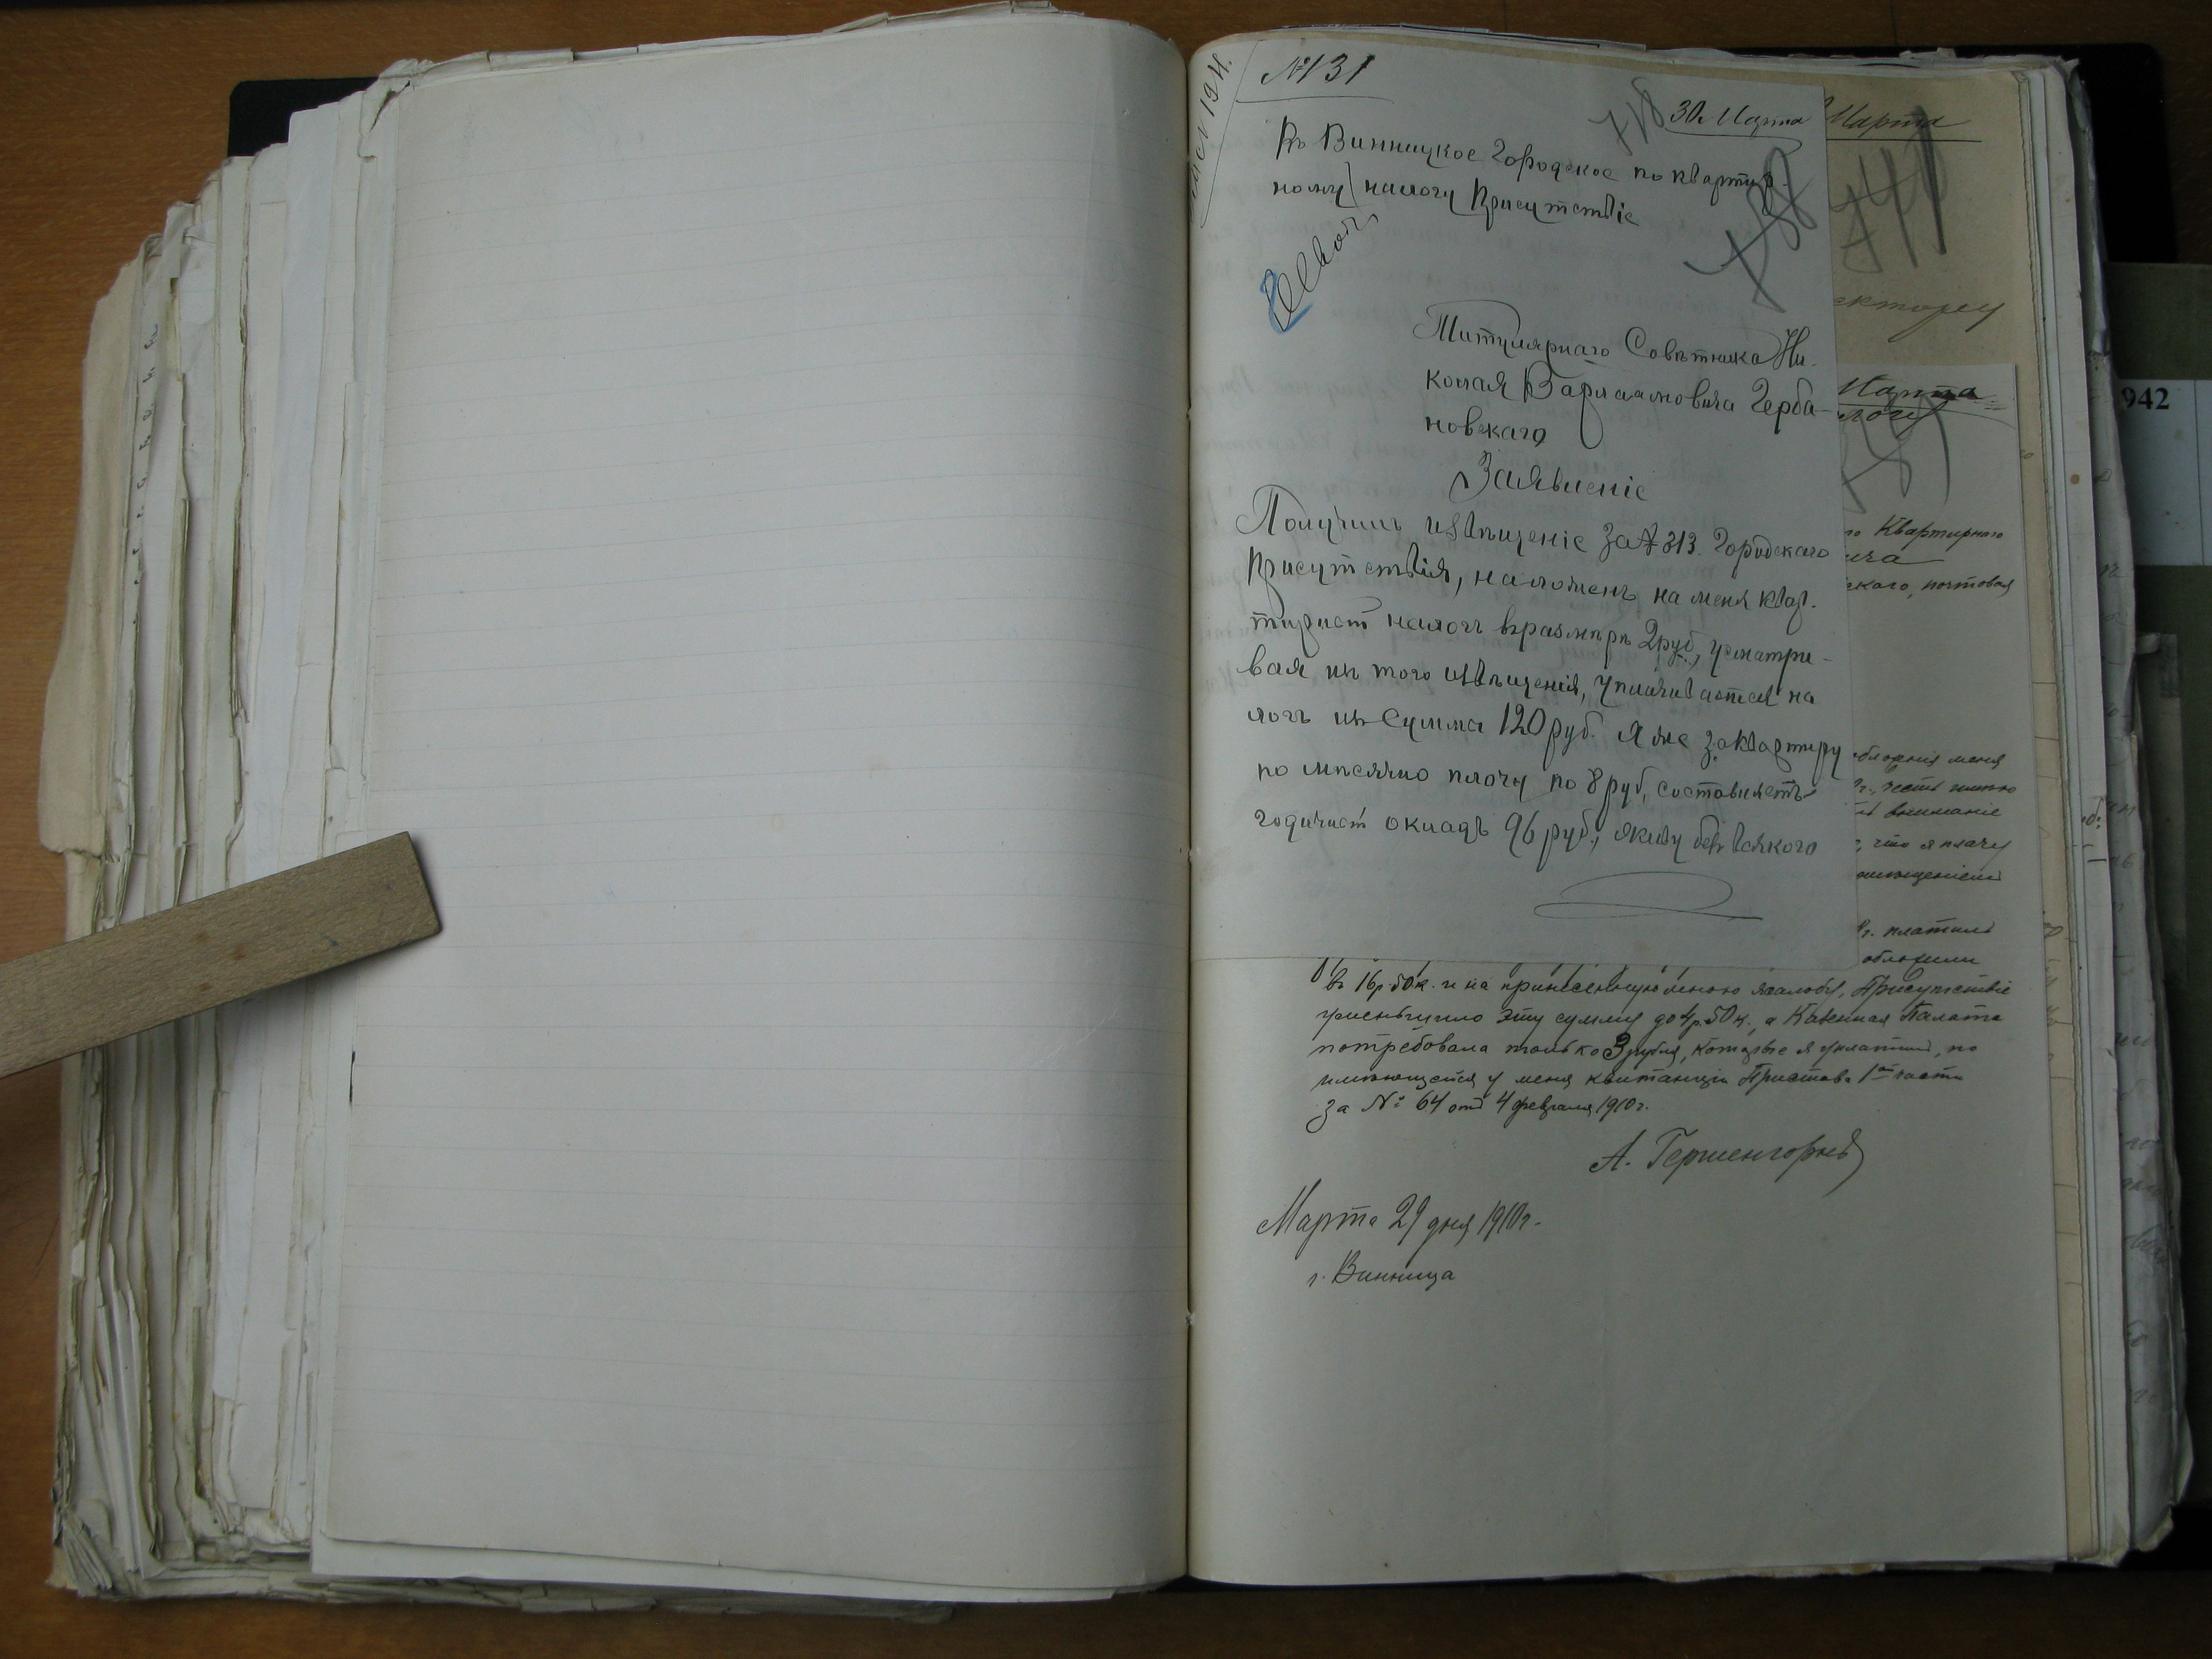 № 131
30 Марта
718
Въ Винницкое Городское по квартир-
ному налогу Присутствіе
Титулярнаго Совѣтника Ни-
колая Варлаамовича Герба-
новскаго
Заявленіе
Получивъ извѣщеніе за № 313. Городскаго
Присутствія, наложенъ на меня квар-
тирный налогъ въ размѣрѣ 2 руб., усматри-
вая изъ того извѣщенія, уплачивается на
логъ изъ сумма 120 руб. я же за квартиру
по мѣсячно плачу по 8 руб, составляетъ
годичный окладъ 96 руб., я живу безъ всякого
Марта
741
ектору
Марта
логу
го Квартирнаго
ича
скаго, почтовая
обложенія меня
честь имѣю
вниманіе
, что я плачу
г. платилъ
обложили
въ 16 р. 50 к. и на принесенную мною жалобу, Присутствіе
уменьшило эту сумму до 4 р. 50 к., а Казенная Палата
потребовала только 3 рубля, которые я уплатилъ, по
имѣющейся у меня квитанціи Пристава 1ой части
за № 64 отъ 4 февраля 1910 г.
А. Гершенгорнъ
Марта 29 дня 1910 г.
г. Винница
942